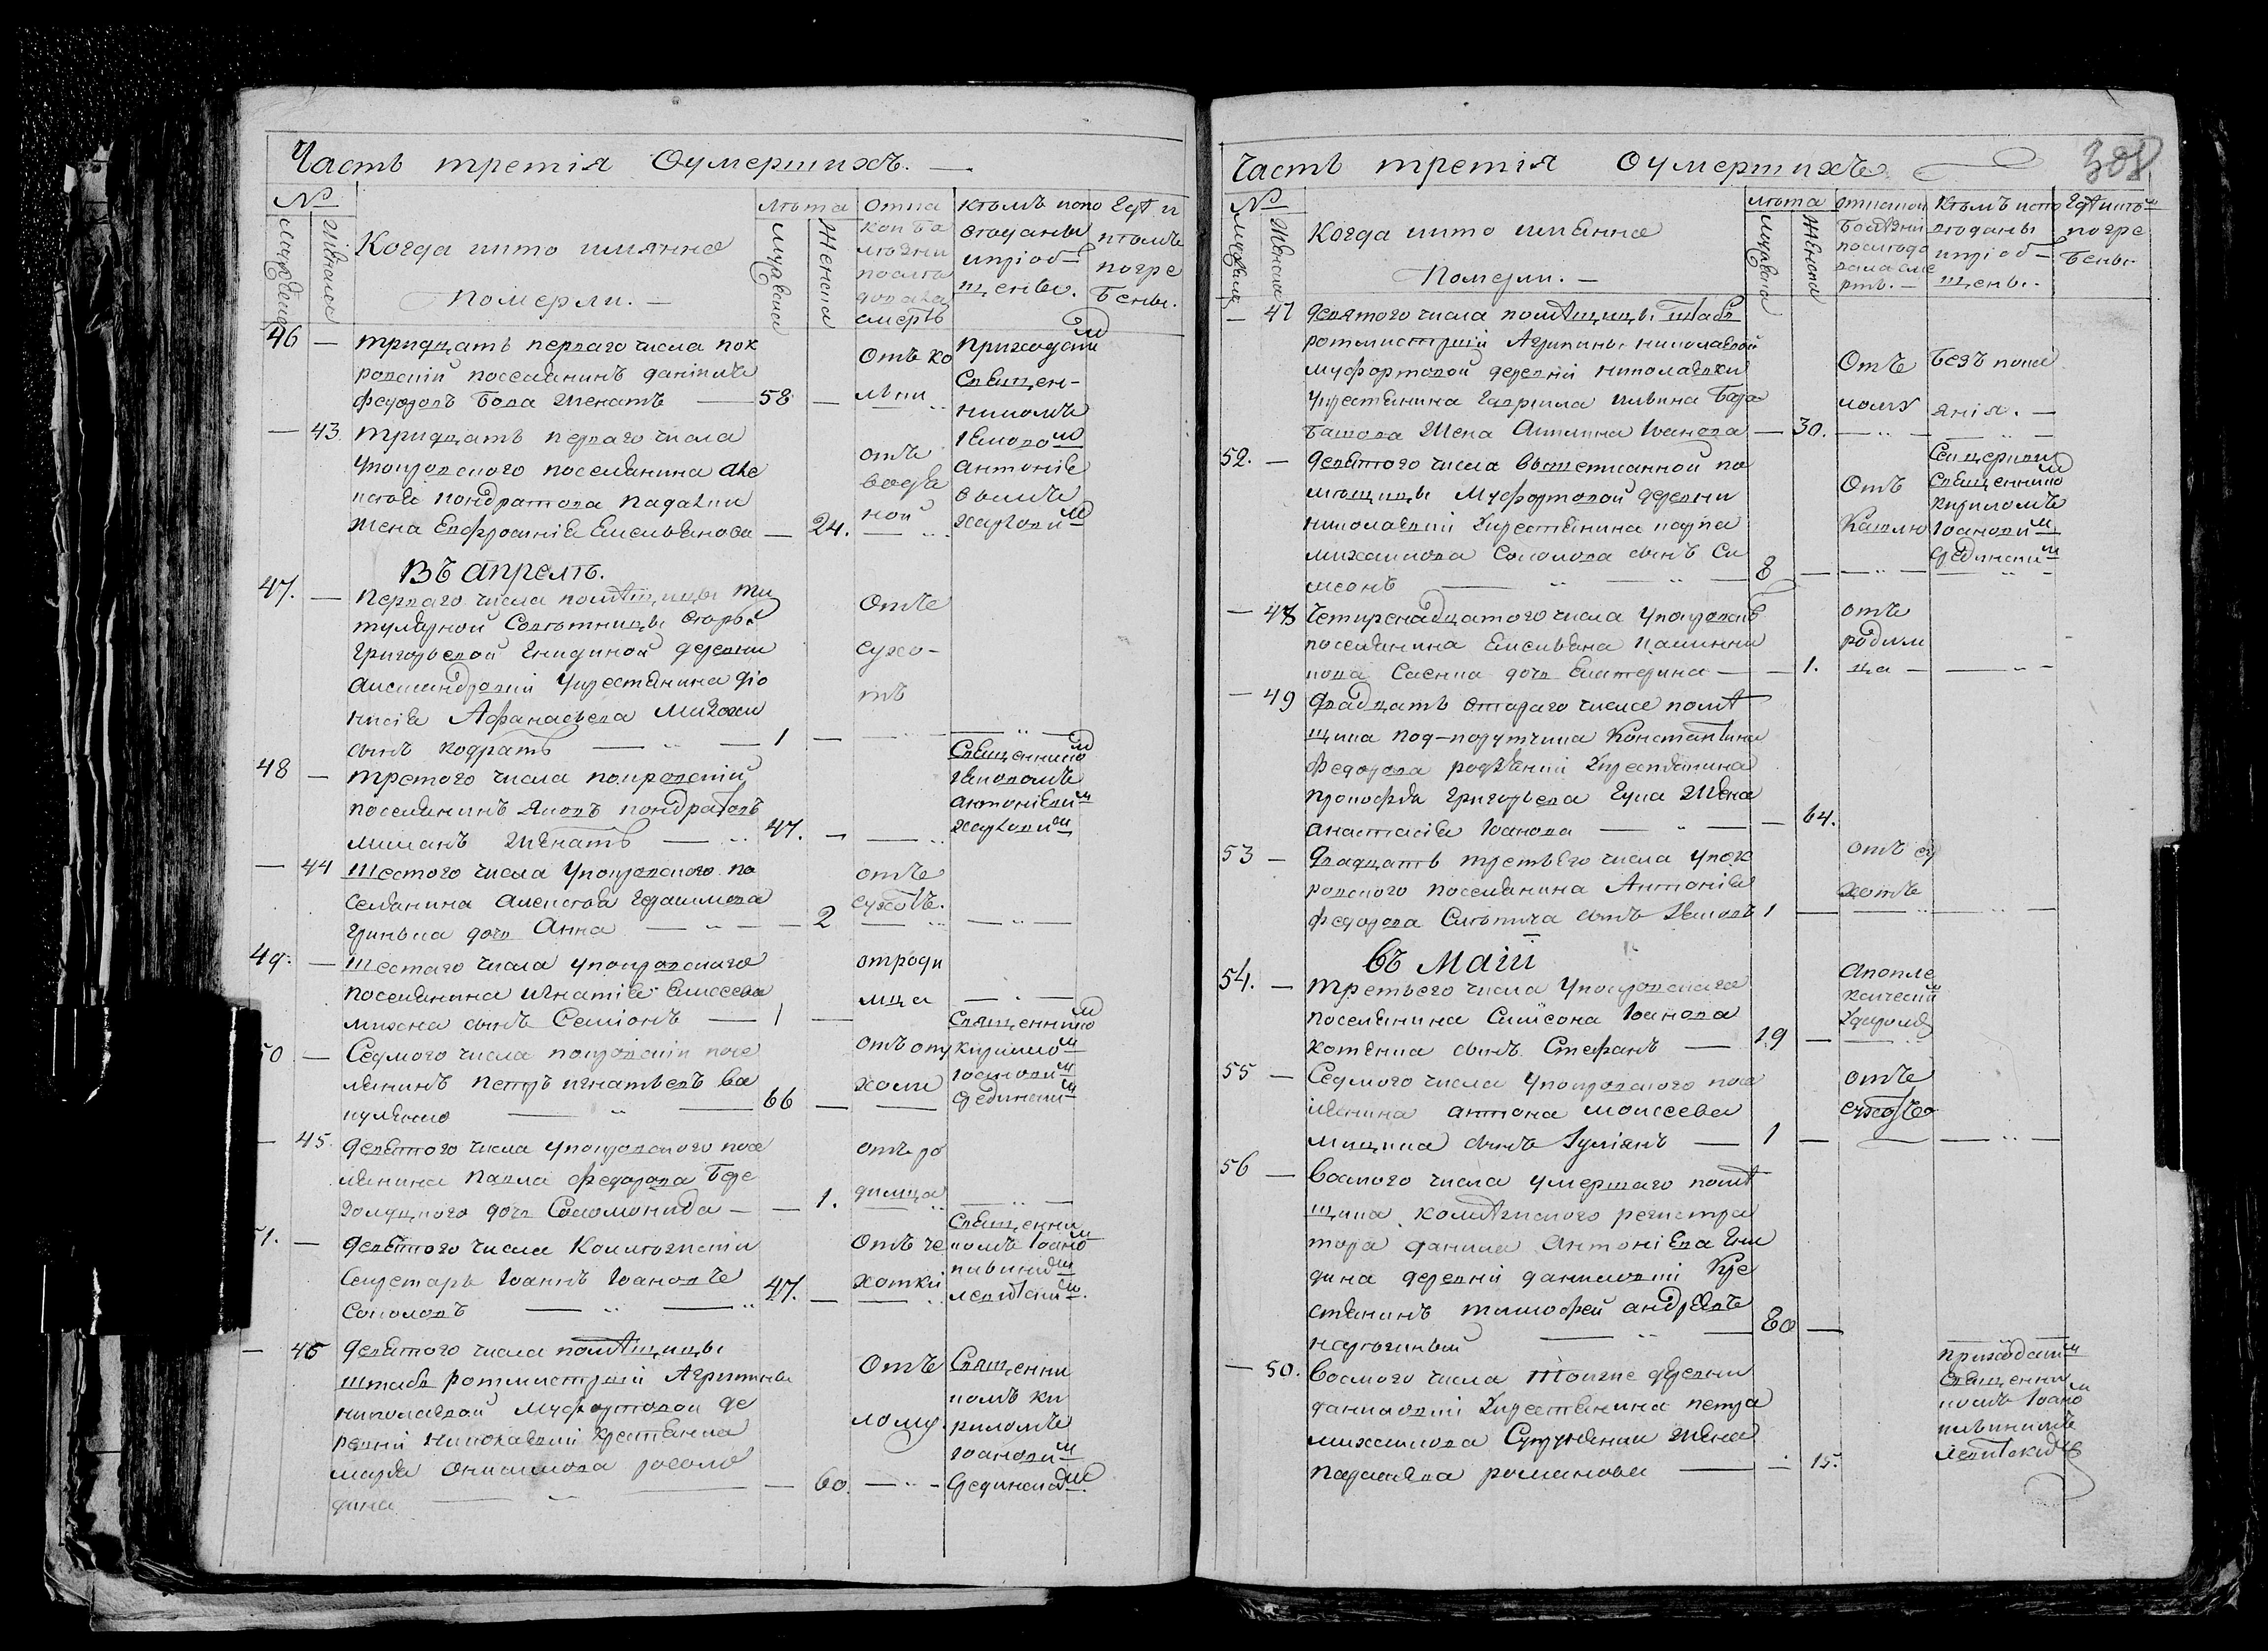 Часть третія Оумершихъ. —
№
Мужеска
Женска
Когда и кто имянно
Померли. —
лѣта
Мужеска
Женска
Отка
кой бо
лѣзни
послѣ
довала
смерть
Кѣмъ испо
вѣданы
и пріоб-
щены.
Гдѣ и
кѣмъ
погре
бены.
46 — тридцать перваго числа пок
ровскій поселянинъ Даніилъ
Федоровъ Бова Женатъ — 58 —
Отъ ко
льки
приходским
Священ-
никомъ
Іаковом
Антоніе
вымъ
Харловим
— 43. тридцать перваго числа
упокровского поселянина Але
ксѣя Кондратова
Жена Евфросиніа Емельянова — 24.
отъ
водя
ной
Въ апрелѣ.
47. — перваго числа помѣщицы ти
тулярной Совѣтницы
Григорьевой Гнидиной деревни
Александровки Укрестянина Діо
нисіа Афанасьева
сынъ Кодратъ — 1 —
Отъ
сухо-
тъ
48 — третого числа покровскій
поселянинъ Яковъ Кондратовъ
Женатъ — 47. —
Священником
Іаковомъ
Антоніевим
Харловим
— 44 Шестого числа упокровского по
селянина Алексѣя Герасимова
Гринька дочь Анна — 2
отъ
сухотъ.
49. — Шестаго числа упокровскаго
поселянина Игнатіа Елисеева
Михна сынъ Семіонъ — 1 —
отроди
мца
50 — Седмого числа покровскій посе
лянинъ Петръ Игнатьевъ Ва
куленко — 66 —
отъ опу
холи
Священником
Кирилом
Іоановим
Срединским
— 45. девятого числа упокровского посе
лянина Павла Федорова Бере
голуцкого дочь Соломонида — 1.
отъ ро
димца
51. — девятого числа Колѣжскій
Секретарь Іоаннъ Іоановъ
Соколовъ — 47. —
Отъ че
хотки
Священни
комъ Іоано
Левитским.
— 46 девятого числа помѣщицы
штабъ ротмистрши Агрипины
Николаевой Муфортовой де
ревни Николаевки Крестянка
Марфа Онисимова
дина — 60.
Отъ
лому.
Священни
комъ Ки
риломъ
Іоановим
Срединским

Часть третія Оумершихъ 308
№
Мужеска
Женска
Когда и кто имянно
Померли. —
лѣта
Мужеска
Женска
откакой
болѣзни
послѣдо
вала сме
рть. —
Кѣмъ испо
вѣданы
и пріоб-
щены.
Гдѣ и кѣм
погре
бены
— 47 девятого числа помѣщицы штабъ
ротмистрши Агрипины Николаевой
Муфортовой деревни Николаевки
Укрестянина Гаврила Ильина
Жена Акилина Іоанова — 30.
Отъ
лому
Безъ пока
янія. —
52. — девятого числа вышеписанной по
мѣщицы Муфортовой деревни
Николаевки Укрестянина Карпа
Михаилова Соколова сынъ Си
меонъ — 8 —
Отъ
Кашлю
Священником
Кириломъ
Іоановим
Срединским
— 48 Четиренадцатого числа упокровскаго
поселянина Емельяна Калинни
кова Саенка дочь Екатерина — 1.
отъ
родим
ца —
— 49 Двадцать втораго числа помѣ
щика под-порутчика Константина
Федорова Укрестянина
Прокофія Григорьева Гуца Жена
Анастасіа Іоанова — 64.
53 — Двадцать третьего числа упок
ровского поселянина Антоніа
Федорова сынъ Іаковъ 1 —
отъ су
хотъ
въ Маіи
54. — третьего числа упокровскаго
поселянина Симеона Іоанова
Котенка сынъ Стефанъ — 19 —
Апопле
ксическим
Ударомъ
55 — Седмого числа упокровского посе
лянина Антона Моисеева
сынъ Іуліянъ — 1 —
отъ
сухотъ
56 — Восмого числа умершаго помѣ
щика колѣжского регистра
тора Данила Антоніева Гни
дина деревни Даниловки Кре
стянинъ Тимофей Андреевъ
— 80 —
— 50. Восмого числа тоиже деревни
Даниловки Укрестянина Петра
Михаилова Жена
Параскева Романова — 15.
приходским
Священни
комъ Іоано
Левитским